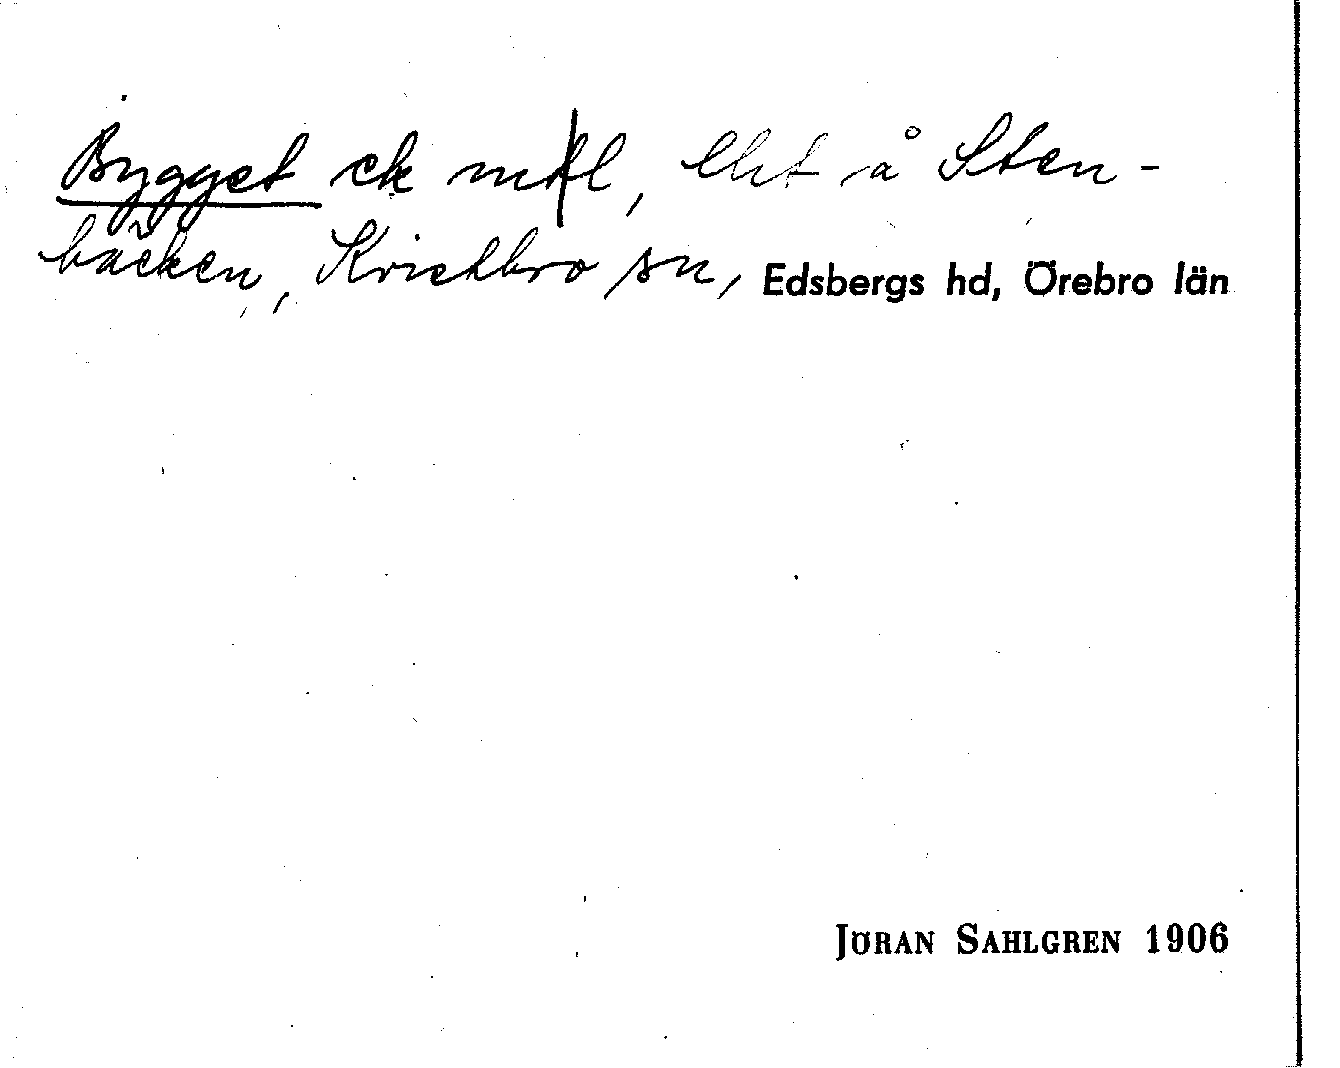 Bygget ck mtl, lht å Sten-
bäcken, Kvistbro sn, Edsbergs hd, Örebro län
JÖRAN SAHLGREN 1906